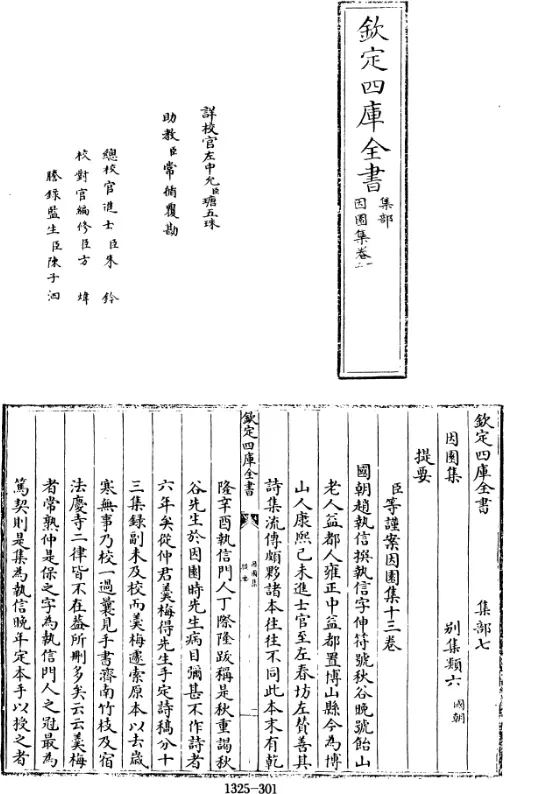 欽定四庫全書
集部
因園集卷一
二
詳校官左中允臣瑭五珠
助教臣常循覆勘
總校官進士臣朱鈐
校對官編修臣方煒
謄錄監生臣陳子泗
欽定四庫全書 集部七
因園集 別集類六 國朝
提要
臣等謹案因園集十三卷
國朝趙執信撰執信字伸符號秋谷晚號飴山
老人益都人雍正中益都置博山縣今為博
山人康熙己未進士官至左春坊左贊善其
詩集流傳頗夥諸本往往不同此本末有乾
欽定四庫全書
因園集
提要
一
隆辛酉執信門人丁際隆跋稱是秋重謁秋
谷先生於因園時先生病目彌甚不作詩者
六年矣從仲君美梅得先生手定詩稿分十
三集錄副未及校而美梅遽索原本以去歲
寒無事乃校一過曩見手書濟南竹枝及宿
法慶寺二律皆不在葢所刪多矣云云美梅
者常熟仲是保之字為執信門人之冠最為
篤契則是集為執信晚年定本手以授之者
1325-301